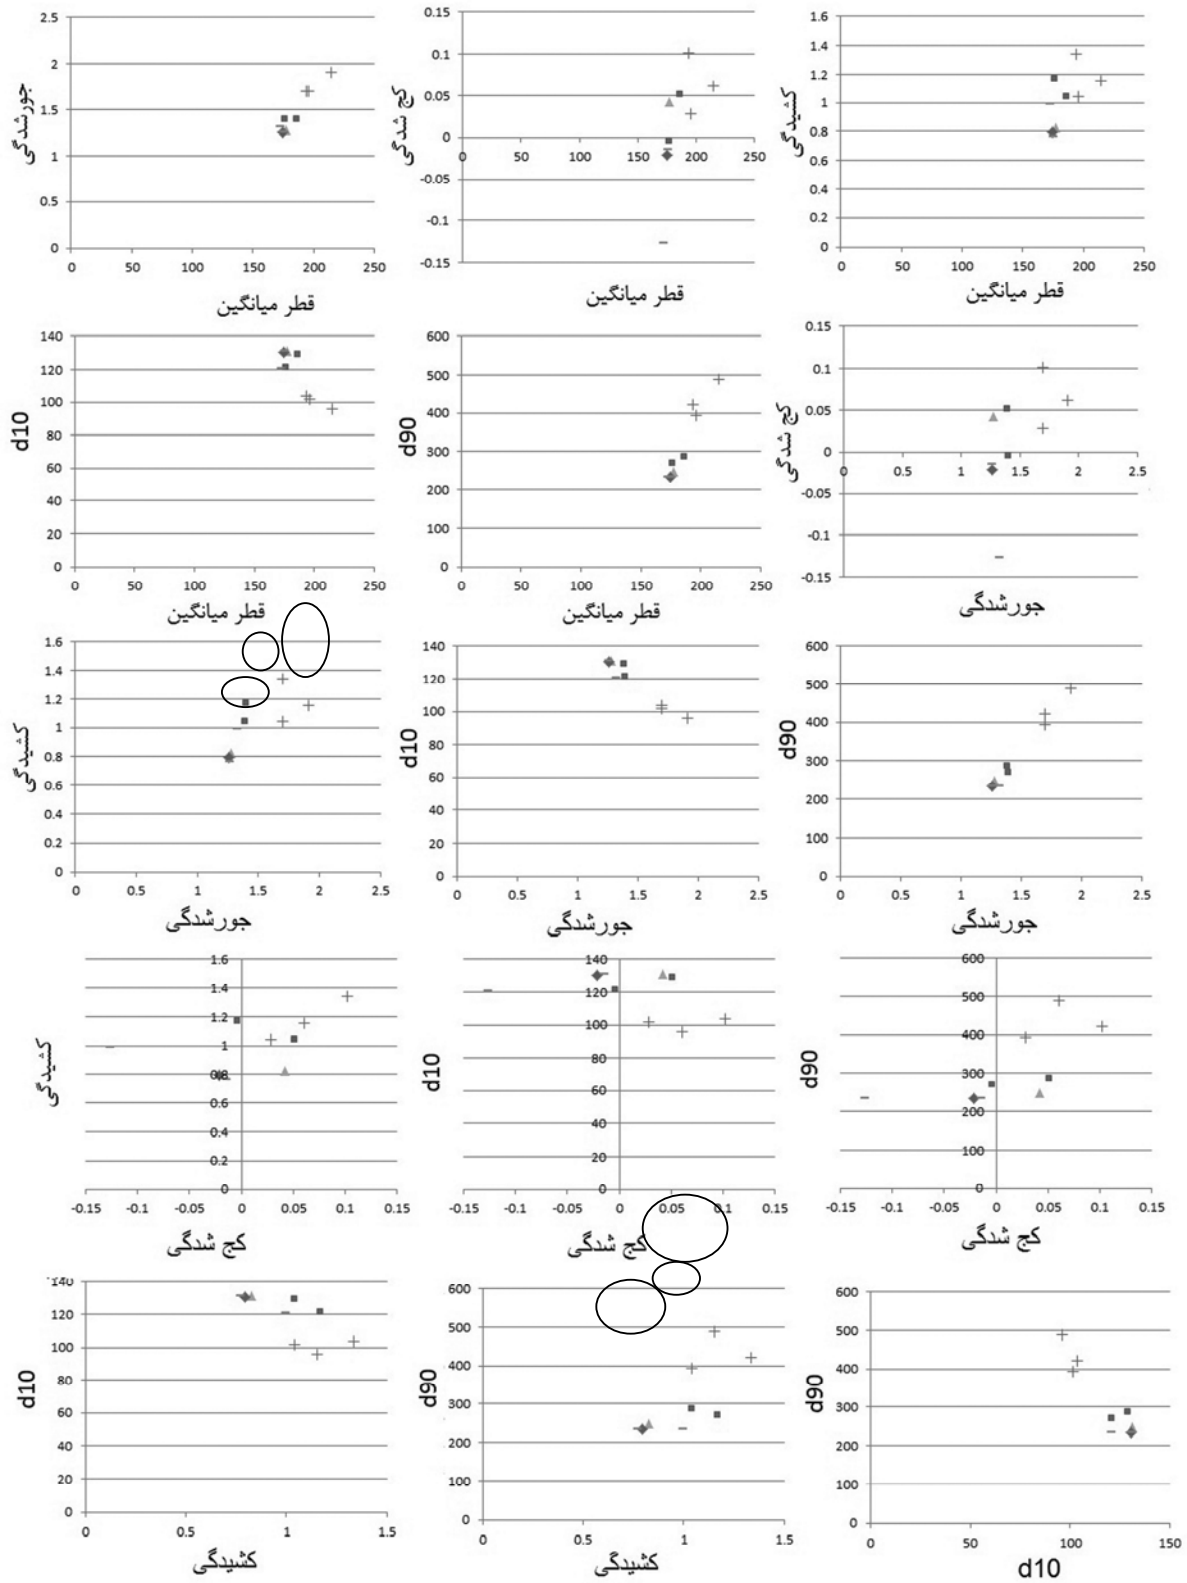 2.5
2
1.5
1
0.5
0
0 50 100 150 200 250
جورشدگی
قطر میانگین
0.15
0.1
0.05
0
-0.05
-0.1
-0.15
0 50 100 150 200 250
کج شدگی
قطر میانگین
1.6
1.4
1.2
1
0.8
0.6
0.4
0.2
0
0 50 100 150 200 250
کشیدگی
قطر میانگین
140
120
100
80
60
40
20
0
0 50 100 150 200 250
d10
قطر میانگین
600
500
400
300
200
100
0
0 50 100 150 200 250
d90
قطر میانگین
0.15
0.1
0.05
0
-0.05
-0.1
-0.15
0 0.5 1 1.5 2 2.5
کج شدگی
جورشدگی
1.6
1.4
1.2
1
0.8
0.6
0.4
0.2
0
0 0.5 1 1.5 2 2.5
کشیدگی
جورشدگی
140
120
100
80
60
40
20
0
0 0.5 1 1.5 2 2.5
d10
جورشدگی
600
500
400
300
200
100
0
0 0.5 1 1.5 2 2.5
d90
جورشدگی
1.6
1.4
1.2
1
0.8
0.6
0.4
0.2
0
-0.15 -0.1 -0.05 0 0.05 0.1 0.15
کشیدگی
کج شدگی
140
120
100
80
60
40
20
0
-0.15 -0.1 -0.05 0 0.05 0.1 0.15
d10
کج شدگی
600
500
400
300
200
100
0
-0.15 -0.1 -0.05 0 0.05 0.1 0.15
d90
کج شدگی
140
120
100
80
60
40
20
0
0 0.5 1 1.5
d10
کشیدگی
600
500
400
300
200
100
0
0 0.5 1 1.5
d90
کشیدگی
600
500
400
300
200
100
0
0 50 100 150
d90
d10